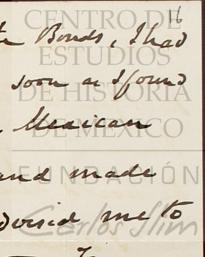 16
Bonds, I had
soon as I found
Mexican
and made
me to
CENTRO DE
ESTUDIOS
DE HISTORIA
DE MÉXICO
FUNDACIÓN
Carlos Slim